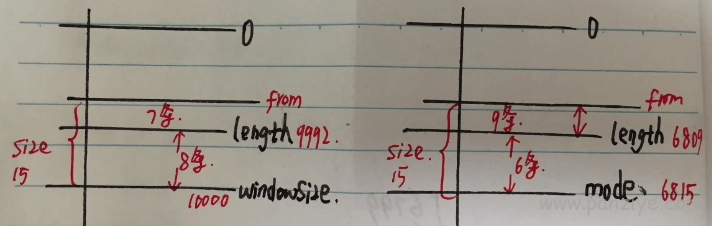 0
from
7条.
length 9992.
size
15
8条.
10000 windowSize.
0
from
9条.
length 6809
size.
15
6条.
mode、 6815
www.panziye.com